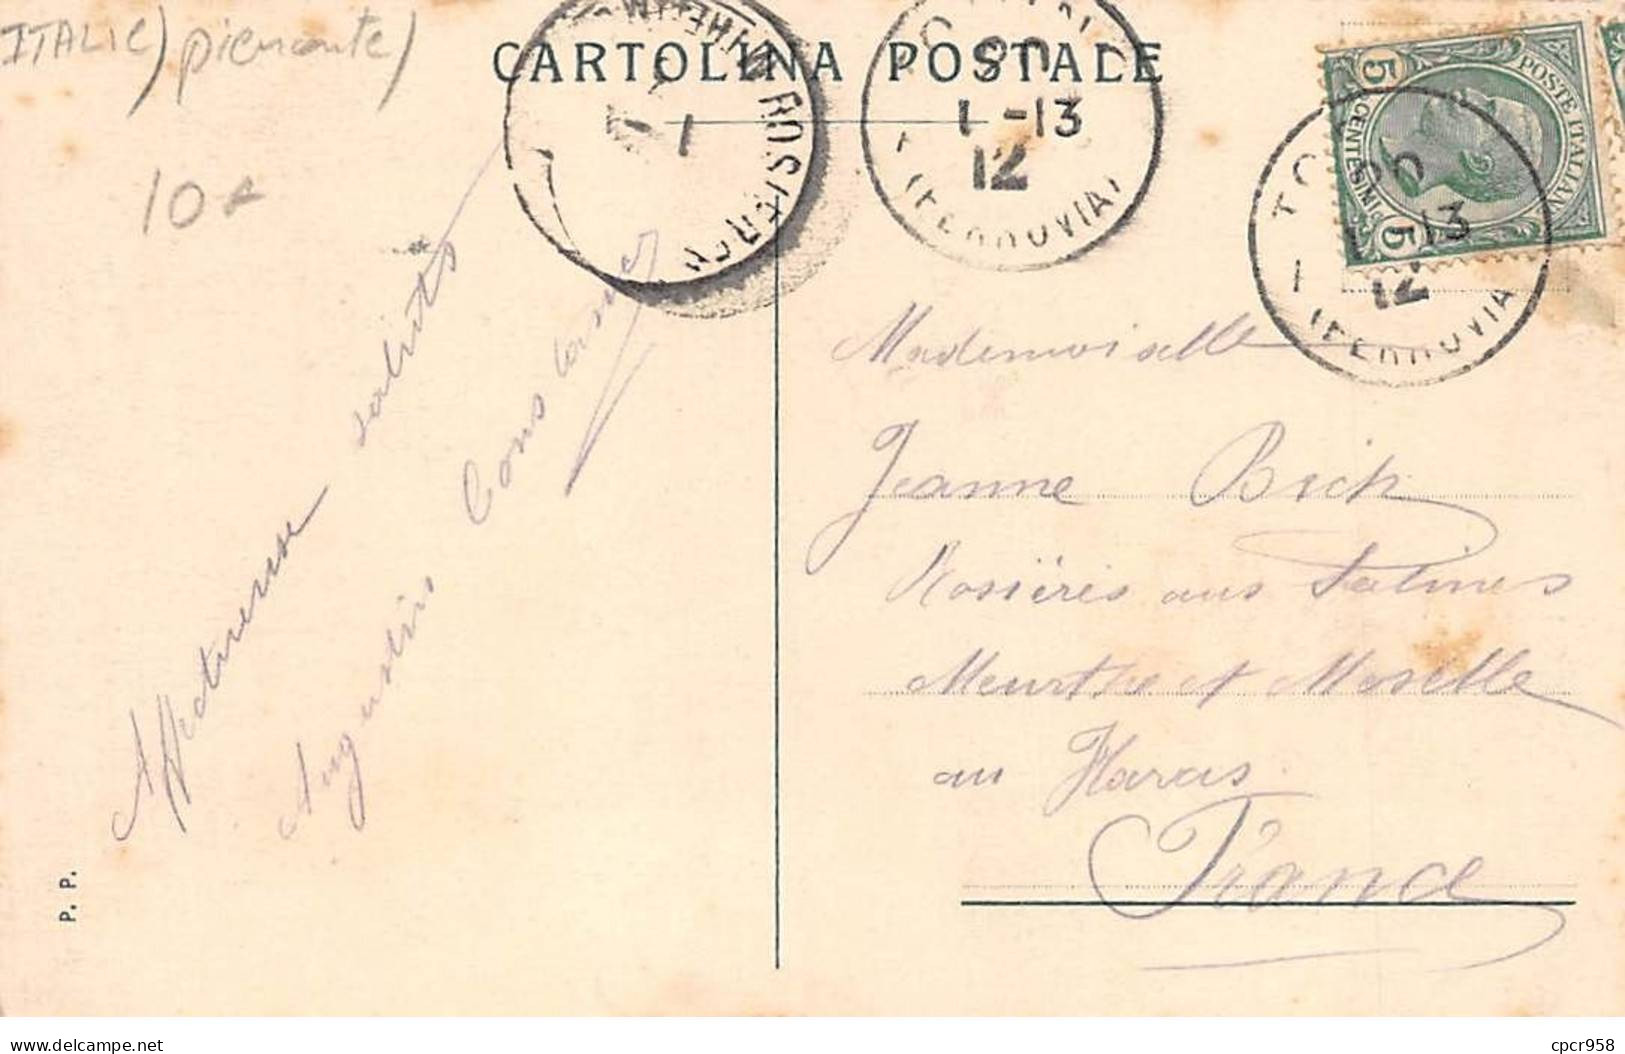 ITALIE) piemonte)
10+
CARTOLINA POSTALE
1-13
12
(FERROVIA)
TORINO
13
12
(FERROVIA)
POSTE ITALIANE
CENTESIMI 5
5
ROSIERES
Affectueuse saluts
Mademoiselle
Jeanne Bich
Rosières aux Salines
Meurthe et Moselle
au Haras
France
P. P.
delcampe.net
cpcr958